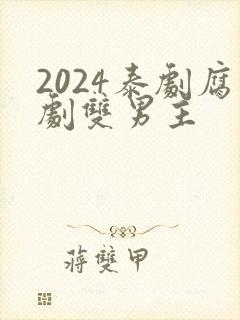 2024泰劇腐
劇雙男主
蔣雙甲